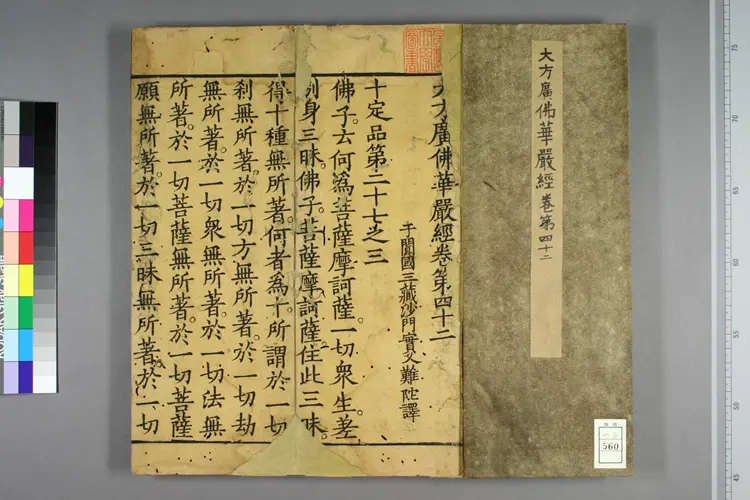 大方廣佛華嚴經卷第四十二
大方廣佛華嚴經卷第四十二
于闐國三藏沙門實叉難陀譯
十定品第二十七之三
佛子云何為菩薩摩訶薩一切衆生差
別身三昧佛子菩薩摩訶薩住此三昧
得十種無所著何者為十所謂於一切
刹無所著於一切方無所著於一切劫
無所著於一切衆無所著於一切法無
所著於一切菩薩無所著於一切菩薩
願無所著於一切三昧無所著於一切
560